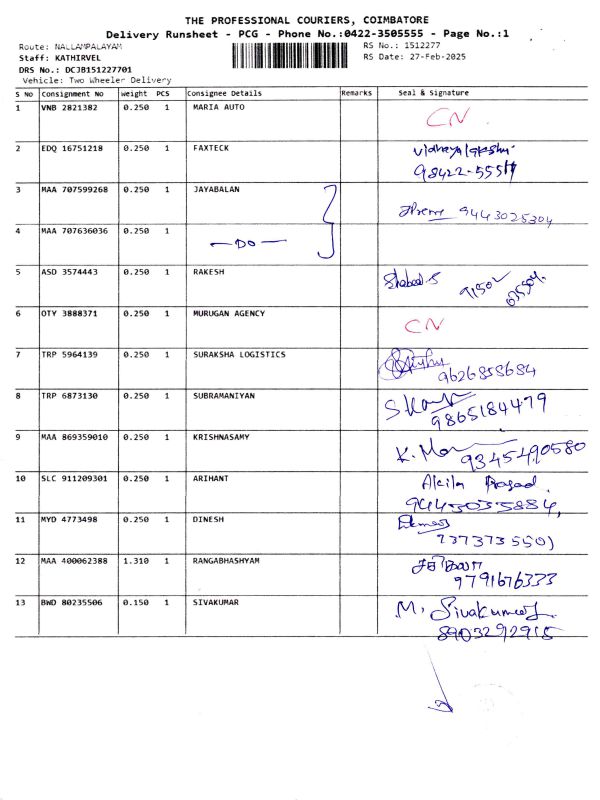 THE PROFESSIONAL COURIERS, COIMBATORE
Delivery Runsheet - PCG - Phone No.:0422-3505555 - Page No.:1
Route: NALLAMPALAYAM RS No.: 1512277
Staff: KATHIRVEL RS Date: 27-Feb-2025
DRS No.: DCJB151227701
Vehicle: Two Wheeler Delivery
S No Consignment No Weight PCS Consignee Details Remarks Seal & Signature
1 VNB 2821382 0.250 1 MARIA AUTO CN
2 EDQ 16751218 0.250 1 FAXTECK
98422-55511
3 MAA 707599268 0.250 1 JAYABALAN 9443025304
4 MAA 707636036 0.250 1 —DO—
5 ASD 3574443 0.250 1 RAKESH
6 OTY 3888371 0.250 1 MURUGAN AGENCY CN
7 TRP 5964139 0.250 1 SURAKSHA LOGISTICS
9626858684
8 TRP 6873130 0.250 1 SUBRAMANIYAN
9865184479
9 MAA 869359010 0.250 1 KRISHNASAMY
9345490580
10 SLC 911209301 0.250 1 ARIHANT Akila Prasad
11 MYD 4773498 0.250 1 DINESH
7373735501
12 MAA 400062388 1.310 1 RANGABHASHYAM
9791676333
13 BWD 80235506 0.150 1 SIVAKUMAR M. Sivakumar
8903292915